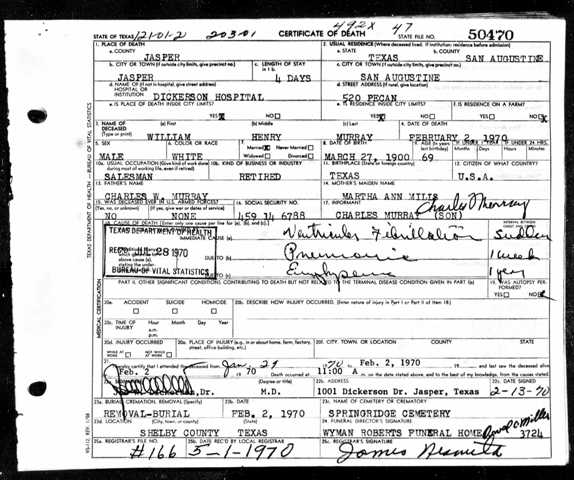 492x 47
STATE OF TEXAS 12101-2 203-01 CERTIFICATE OF DEATH STATE FILE NO. 50470
1. PLACE OF DEATH 2. USUAL RESIDENCE (Where deceased lived. If institution: residence before admission)
a. COUNTY a. STATE b. COUNTY
JASPER TEXAS SAN AUGUSTINE
b. CITY OR TOWN (If outside city limits, give precinct no.) c. LENGTH OF STAY in 1 b c. CITY OR TOWN (If outside city limits, give precinct no.)
JASPER 4 DAYS SAN AUGUSTINE
d. NAME OF (If not in hospital, give street address) HOSPITAL OR INSTITUTION d. STREET ADDRESS (If rural, give location)
DICKERSON HOSPITAL 520 PECAN
e. IS PLACE OF DEATH INSIDE CITY LIMITS? e. IS RESIDENCE INSIDE CITY LIMITS? f. IS RESIDENCE ON A FARM?
YES NO YES NO YES NO
3. NAME OF DECEASED (Type or print) (a) First (b) Middle (c) Last 4. DATE OF DEATH
WILLIAM HENRY MURRAY FEBRUARY 2, 1970
5. SEX 6. COLOR OR RACE 7. Married Never Married 8. DATE OF BIRTH 9. AGE (In years last birthday) IF UNDER 24 HRS.
MALE WHITE Widowed Divorced MARCH 27, 1900 69
10a. USUAL OCCUPATION (Give kind of work done during most of working life, even if retired) 10b. KIND OF BUSINESS OR INDUSTRY 11. BIRTHPLACE (State or foreign country) 12. CITIZEN OF WHAT COUNTRY?
SALESMAN RETIRED TEXAS U.S.A.
13. FATHER'S NAME 14. MOTHER'S MAIDEN NAME
CHARLES W. MURRAY MARTHA ANN MILLS
15. WAS DECEASED EVER IN U.S. ARMED FORCES? 16. SOCIAL SECURITY NO. 17. INFORMANT Charles Murray
(Yes, no, or unknown) (If yes, give war or dates of service)
NO NONE 459 14 6788 CHARLES MURRAY (SON)
18. CAUSE OF DEATH (Enter only one cause per line for (a), (b), and (c).) INTERVAL BETWEEN ONSET AND DEATH
TEXAS DEPARTMENT OF HEALTH IMMEDIATE CAUSE (a) Ventricular Fibrillation Sudden
REC'D JUL 28 1970 DUE TO (b) Pneumonia 1 week
BUREAU OF VITAL STATISTICS DUE TO (c) 1 year
PART II. OTHER SIGNIFICANT CONDITIONS CONTRIBUTING TO DEATH BUT NOT RELATED TO THE TERMINAL DISEASE CONDITION GIVEN IN PART I (a) 19. WAS AUTOPSY PERFORMED?
YES NO
20a. ACCIDENT SUICIDE HOMICIDE 20b. DESCRIBE HOW INJURY OCCURRED. (Enter nature of injury in Part I or Part II of item 18)
20c. TIME OF INJURY Hour Month Day Year
a.m.
p.m.
20d. INJURY OCCURRED 20e. PLACE OF INJURY (e.g., in or about home, farm, factory, street, office building, etc.) 20f. CITY, TOWN, OR LOCATION COUNTY STATE
WHILE AT WORK NOT WHILE AT WORK
21. I hereby certify that I attended the deceased from Jan 29 70 Feb. 2, 1970 and last saw the deceased alive
Feb. 2 70 Death occurred at 11:00 A m. on the date stated above, and to the best of my knowledge, from the causes stated
22b. ADDRESS 22c. DATE SIGNED
Dickerson, Dr. M.D. 1001 Dickerson Dr. Jasper, Texas 2-13-70
23a. BURIAL, CREMATION, REMOVAL (Specify) 23b. DATE 23c. NAME OF CEMETERY OR CREMATORY
REMOVAL-BURIAL FEB. 2, 1970 SPRINGRIDGE CEMETERY
23d. LOCATION (City, town, or county) (State) 24. FUNERAL DIRECTOR'S SIGNATURE
SHELBY COUNTY TEXAS WYMAN ROBERTS FUNERAL HOME Miller 3724
25a. REGISTRAR'S FILE NO. 25b. DATE REC'D BY LOCAL REGISTRAR 25c. REGISTRAR'S SIGNATURE
#166 5-1-1970 James
TEXAS DEPARTMENT OF HEALTH—BUREAU OF VITAL STATISTICS
MEDICAL CERTIFICATION